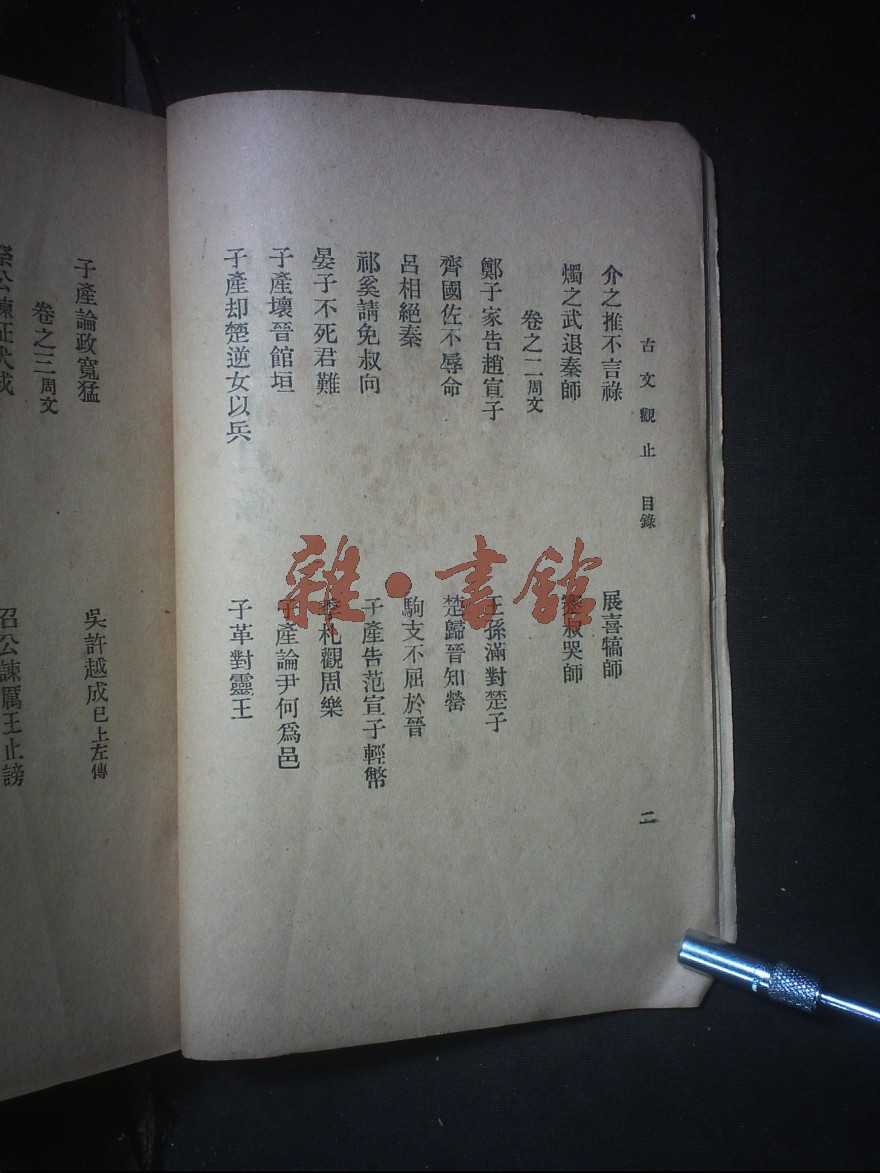 古文觀止 目錄 二
介之推不言祿 展喜犒師
燭之武退秦師 蹇叔哭師
卷之二周文
鄭子家告趙宣子 王孫滿對楚子
齊國佐不辱命 楚歸晉知罃
呂相絕秦 駒支不屈於晉
祁奚請免叔向 子產告范宣子輕幣
晏子不死君難 季札觀周樂
子產壞晉館垣 子產論尹何爲邑
子產却楚逆女以兵 子革對靈王
子產論政寬猛 吳許越成已上左傳
卷之三周文
祭公諫征犬戎 召公諫厲王止謗
雜·書館